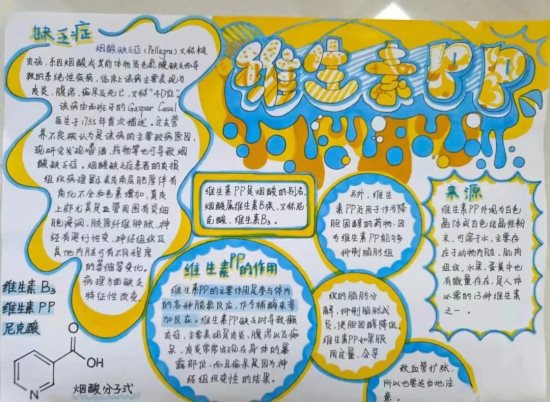 维生素PP
缺乏症
烟酸缺乏症(Pellagra)又称糙
皮病,系因烟酸或其前体物质色氨酸缺乏导
致的系统性疾病,临床上该病主要表现为
皮炎、腹泻、痴呆及死亡,又称"4D症"。
该病由西班牙的Gaspar Casal
医生于1735年首次描述,过去营
养不良被认为是该病的主要致病原因,
现研究发现嗜酒、药物等也可导致烟
酸缺乏症,烟酸缺乏症患者的皮损
组织病理显示表皮角质肥厚伴有
角化不全和色素增加,真皮
上部尤其是血管周围有炎细
胞浸润,胶原纤维肿胀,神
经有变性相变,神经组织及
其他内脏可有不同程度
的萎缩等变化。
病理方面缺乏
特征性改变。
维生素B3
维生素PP
尼克酸
O
OH
N
烟酸分子式
维生素PP是烟酸的别名,
烟酸属于维生素B族,又称尼
克酸、维生素B3。
维生素PP的作用
维生素PP的主要作用是参与体内
的各种脱氢反应,作为辅酶来参
加反应。维生素PP缺乏时导致癞
皮症,主要表现是皮炎、腹泻以及痴
呆,皮炎常常出现在身体的暴
露部位,而且痴呆是因为神
经组织变性的结果。
另外,维生素
PP还用于作为降
胆固醇的药物,因
为维生素PP能够
抑制脂肪组
织的脂肪分
解,抑制脂肪成
员,使胆固醇降低。
维生素PP如果服
用过量,会导
致血管扩张,
所以也要适当地注
意。
来源
维生素PP外观为白色
晶体或白色结晶性粉
末,可溶于水,主要存
在于动物内脏、肌肉
组织,水果、蛋黄中也
有微量存在,是人体
必需的13种维生素
之一。